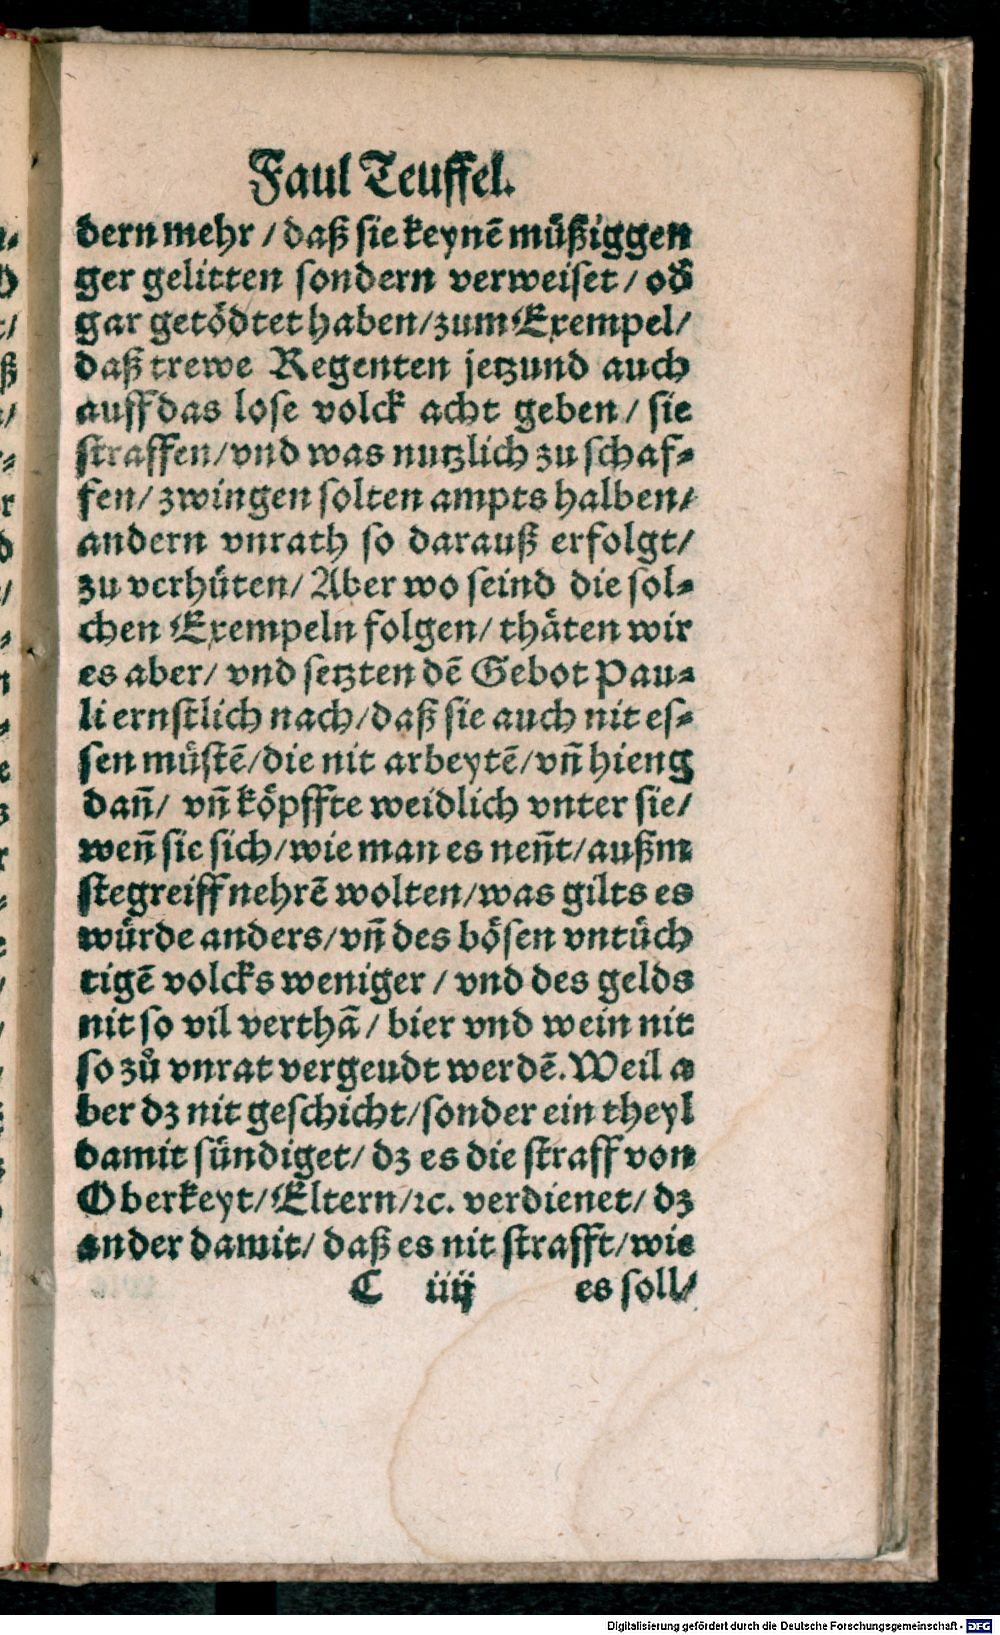 Faul Teuffel.
dern mehr / daß sie keynē müßiggen
ger gelitten sondern verweiset / od̄
gar getödtet haben / zum Exempel /
daß trewe Regenten jetzund auch
auff das lose volck acht geben / sie
straffen / vnd was nutzlich zu schaf⸗
fen / zwingen solten ampts halben /
andern vnrath so darauß erfolgt /
zu verhüten / Aber wo seind die sol⸗
chen Exempeln folgen / thäten wir
es aber / vnd setzten dē Gebot Pau⸗
li ernstlich nach / daß sie auch nit es⸗
sen müstē / die nit arbeytē / vn̄ hieng
dan̄ / vn̄ köpffte weidlich vnter sie /
wen̄ sie sich / wie man es nen̄t / außm
stegreiff nehrē wolten / was gilts es
würde anders / vn̄ des bösen vntüch
tigē volcks weniger / vnd des gelds
nit so vil verthā / bier vnd wein nit
so zů vnrat vergeudt werdē. Weil a
ber dz nit geschicht / sonder ein theyl
damit sündiget / dz es die straff von
Oberkeyt / Eltern / ꝛc. verdienet / dz
ander damit / daß es nit strafft / wie
C iiij es soll /
Digitalisierung gefördert durch die Deutsche Forschungsgemeinschaft - DFG